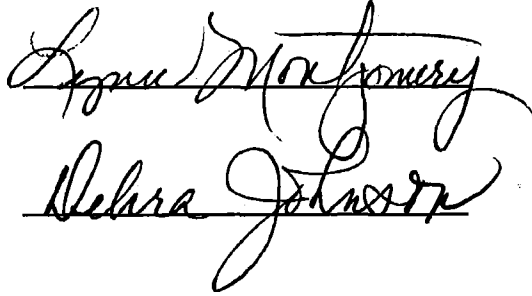 Lynn Montgomery
Debra Johnson